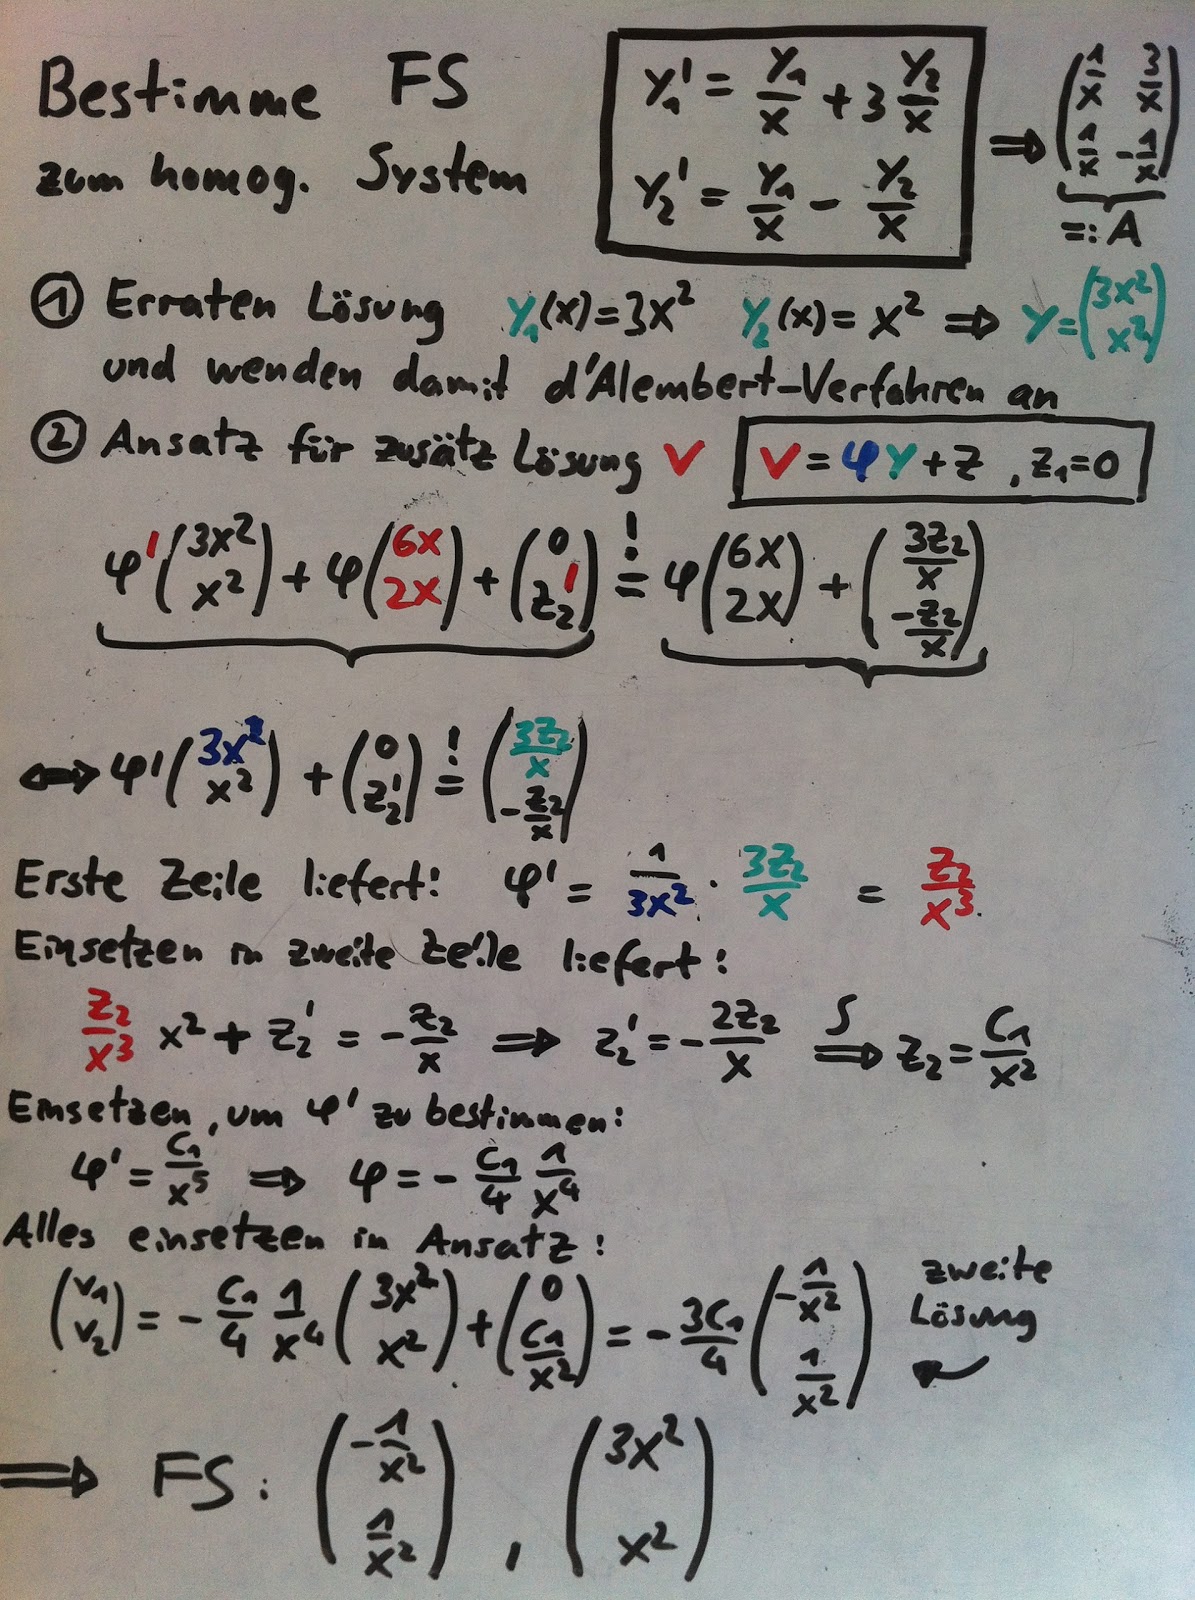 Bestimme FS
zum homog. System
y₁' = y₁/x + 3 y₂/x
y₂' = y₁/x - y₂/x
⟹ (1/x 3/x ; 1/x -1/x) =: A
① Erraten Lösung y₁(x)=3x² y₂(x)=x² ⟹ y=(3x² ; x²)
und wenden damit d'Alembert-Verfahren an
② Ansatz für zusätz Lösung v v=φy+z, z₁=0
φ'(3x² ; x²) + φ(6x ; 2x) + (0 ; z₂') =! φ(6x ; 2x) + (3z₂/x ; -z₂/x)
⟺ φ'(3x² ; x²) + (0 ; z₂') =! (3z₂/x ; -z₂/x)
Erste Zeile liefert: φ' = 1/3x² · 3z₂/x = z₂/x³.
Einsetzen in zweite Zeile liefert:
z₂/x³ x² + z₂' = -z₂/x ⟹ z₂' = -2z₂/x ∫⟹ z₂ = C₁/x²
Einsetzen, um φ' zu bestimmen:
φ' = C₁/x⁵ ⟹ φ = - C₁/4 1/x⁴
Alles einsetzen in Ansatz:
(v₁ ; v₂) = - C₁/4 1/x⁴ (3x² ; x²) + (0 ; C₁/x²) = - 3C₁/4 (-1/x² ; 1/x²) zweite
Lösung
⟹ FS: (-1/x² ; 1/x²), (3x² ; x²)